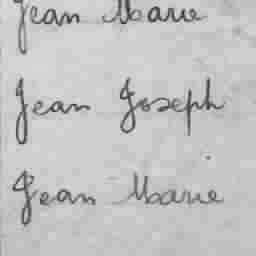 Jean Marie
Jean Joseph
Jean Marie